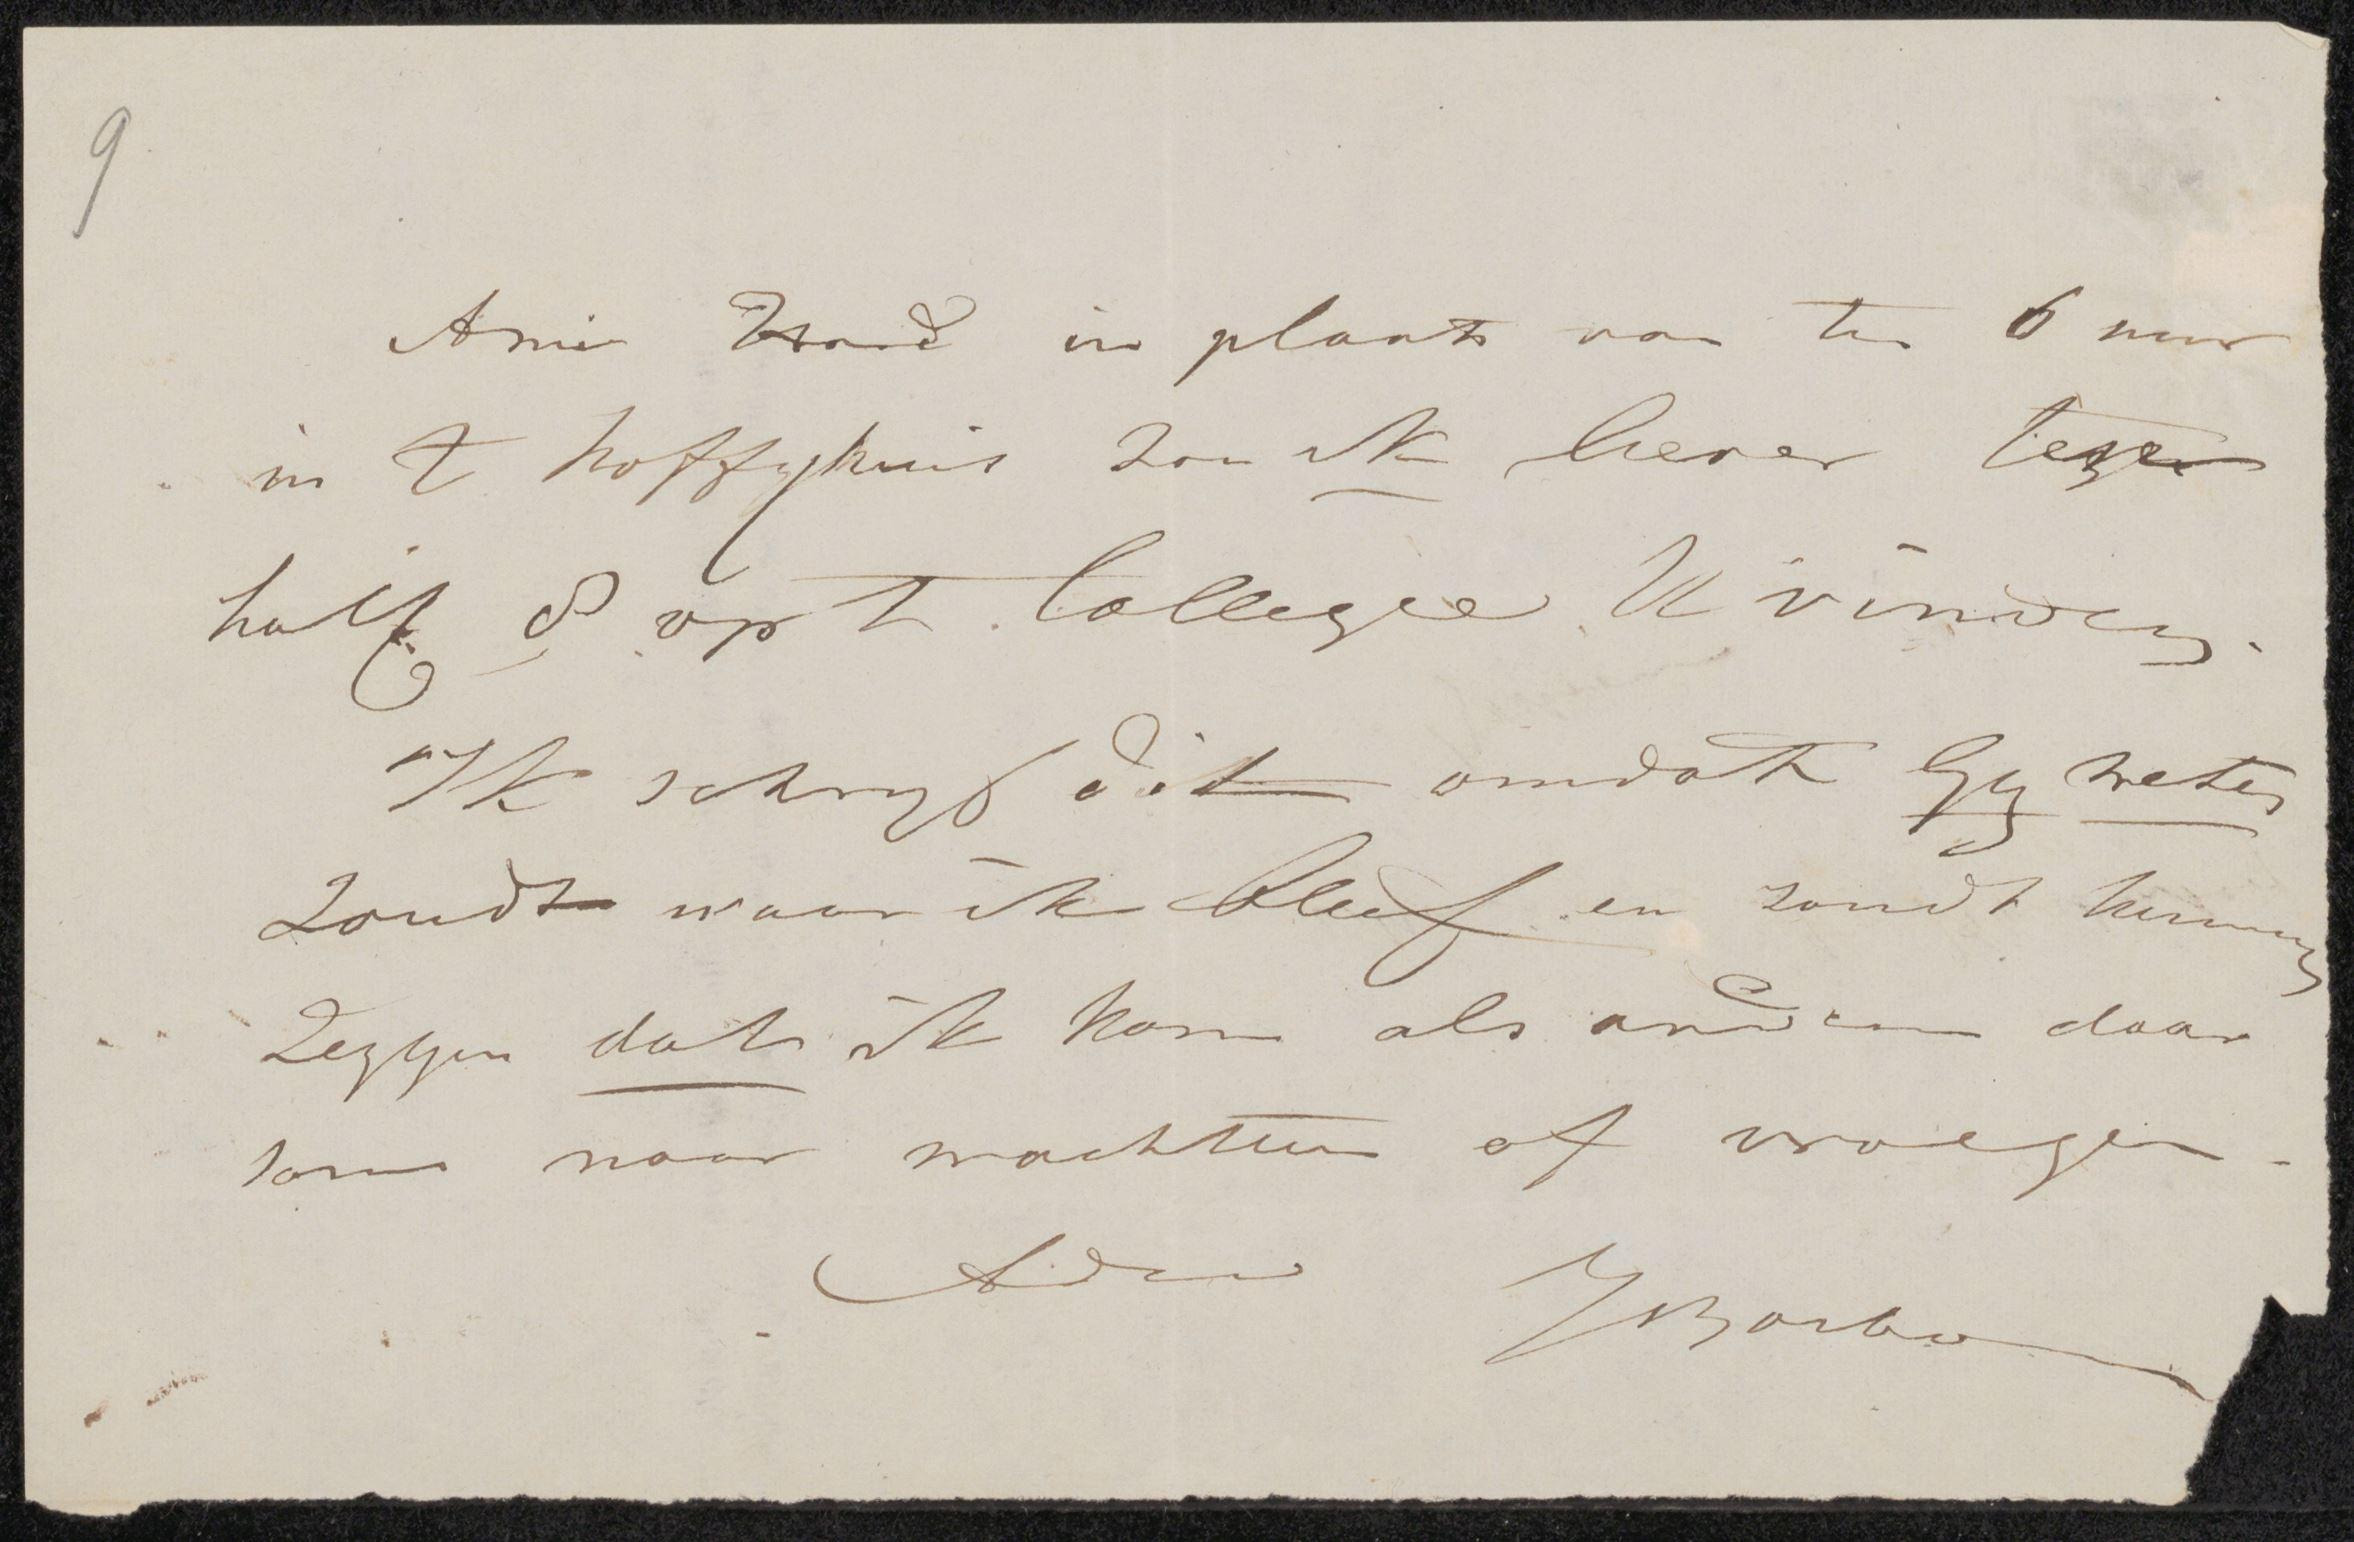 9
Amice in plaats van ten 6 uur
in t koffyhuis zou ik liever tegen
half 8 op t Collegee U vinden.
Ik schryf dit omdat Gy weten
zoudt waar ik bleef en zoudt kunnen
zeggen dat ik kom als anderen daar
soms naar wachtten of vroegen.
Adieu JBosboom